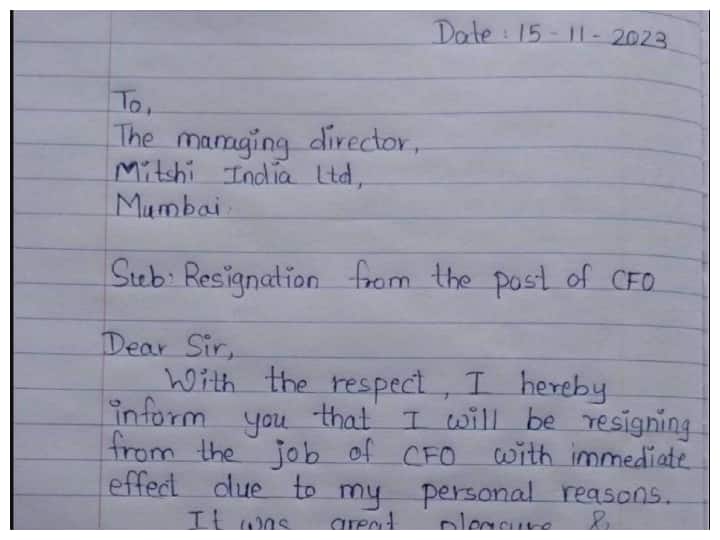 Date : 15 - 11 - 2023
To,
The managing director,
Mitshi India Ltd,
Mumbai.
Sub: Resignation from the post of CFO
Dear Sir,
With the respect, I hereby
inform you that I will be resigning
from the job of CFO with immediate
effect due to my personal reasons.
It was great pleasure &